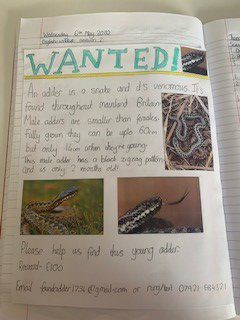 Wednesday 6th May 2020
English
WANTED!
An adder is a snake and it's venomous. It's
found throughout mainland Britain.
Male adders are smaller than females.
Fully grown they can be upto 60cm
but only 16cm when they're young.
This male adder has a black zigzag pattern
and is only 2 months old!
Please help us find this young adder.
Reward- £100
Email @gmail.com or ring/text 07921